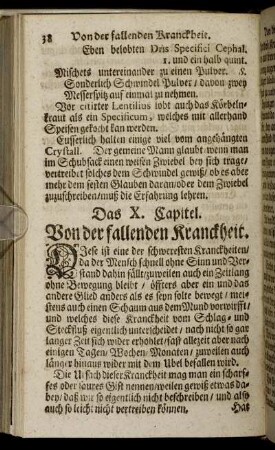 38 Von der fallenden Kranckheit.
Eben belobten Pris Specifici Cephal.
1. und ein halb quint.
Mischets untereinander zu einen Pulver. S.
Sonderlich Schwindel Pulver / davon zwey
Messerspitz auf einmal zu nehmen.
Vor citirter Lentilius lobt auch das Körbeln-
kraut als ein Specificum, welches mit allerhand
Speisen gekocht kan werden.
Eusserlich halten einige viel vom angehängten
Crystall. Der gemeine Mann glaubt wenn man
im Schubsack einen weisen Zwiebel bey sich trage /
vertreibet solches dem Schwindel gewiß / ob es aber
mehr dem festen Glauben daran oder dem Zwiebel
zuzuschreiben / muß die Erfahrung lehren.
Das X. Capitel.
Von der fallenden Kranckheit.
DJese ist eine der schweresten Kranckheiten /
da der Mensch schnell ohne Sinn und Ver-
stand dahin fällt / zuweilen auch ein Zeitlang
ohne Bewegung bleibt / öffters aber ein und das
andere Glied anders als es seyn solte bewegt / mei-
stens auch einen Schaum aus dem Mund vorwirfft /
und welches diese Kranckheit vom Schlag- und
Steckfluß eigentlich unterscheidet / nach nicht so gar
langer Zeit sich wider erhohlet / fast allezeit aber nach
einigen Tagen / Wochen / Monaten / zuweilen auch
länger hinaus wider mit dem Übel befallen wird.
Die Ursach dieser Kranckheit mag man ein scharf-
fes oder saures Gifft nennen / weilen gewiß etwas da-
bey / daß wir so eigentlich nicht beschreiben / und also
auch so leicht nicht vertreiben können. Das